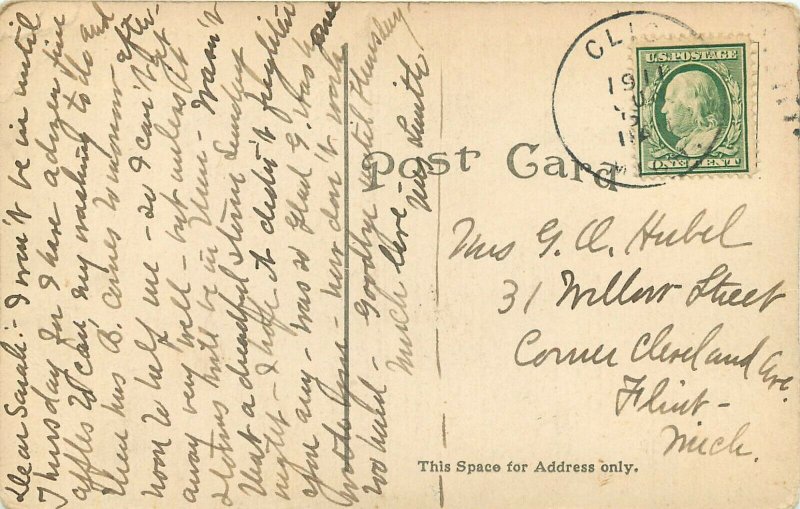 Dear Sarah:- I won't be in until
Thursday for I have a dozen fine
apples to can, my washing to do and
then Mrs B. comes tomorrow after-
noon to help me - so I can't get
away very well - but unless it
storms will be in then - Wasn't
that a dreadful storm Sunday
night - I hope it didn't frighten
you any - was so glad G. was home
with you - now don't work
too hard - Goodbye until Thursday.
Much love -
Mrs Smith.
Post Card
CLIO
1911
MICH
U.S. POSTAGE
ONE CENT
Mrs G. A. Hubel
31 Willow Street
Corner Cleveland Ave.
Flint -
Mich.
This Space for Address only.